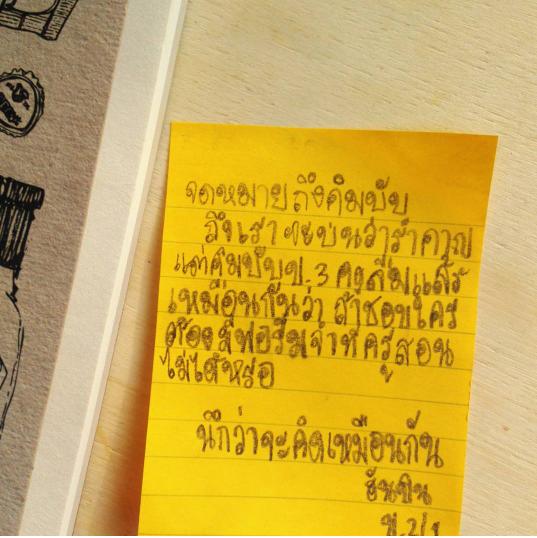 จดหมายถึงคิมบับ
ถึงเราจะบ่นว่ารำคาญ
แต่คิมบับป.3 คงลืมแล้ว
เหมือนกันว่า ถ้าชอบใคร
ต้อง มีฟอร์ม จำที่ครูสอน
ไม่ได้หรอ
นึกว่าจะคิดเหมือนกัน
ป.2/1